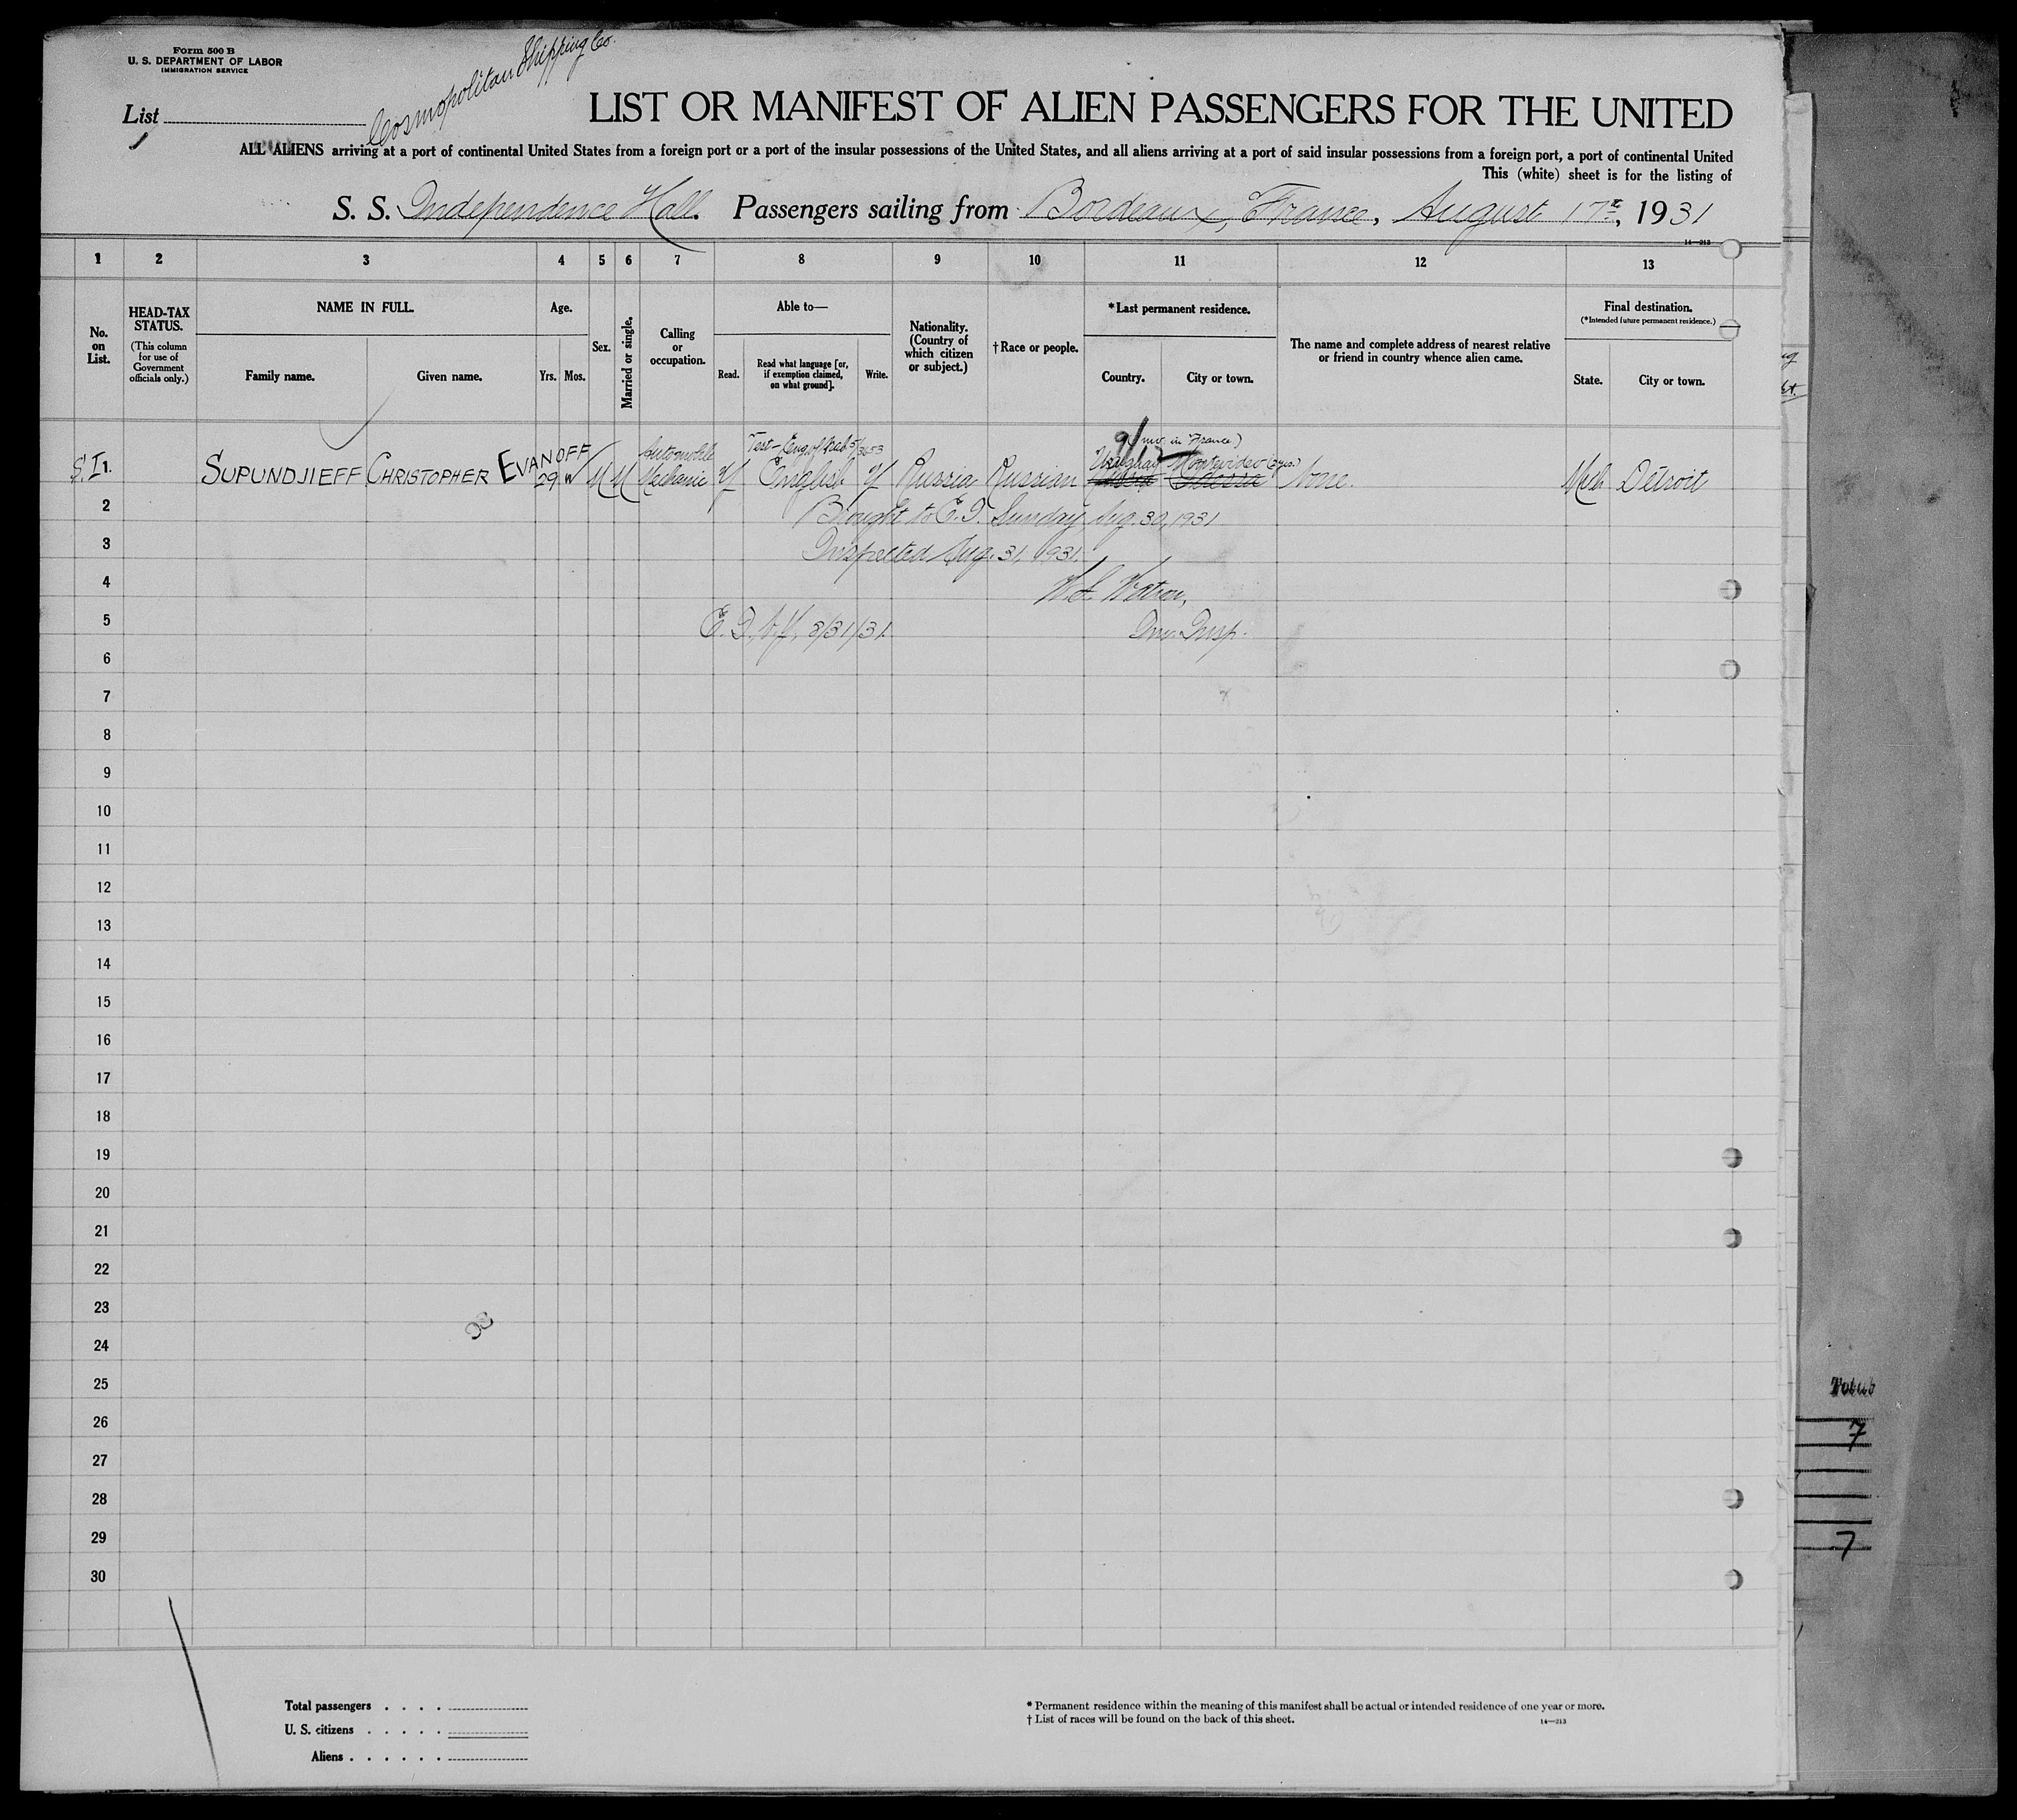 Form 500 B
U. S. DEPARTMENT OF LABOR
IMMIGRATION SERVICE
Cosmopolitan Shipping Co.
List
1
LIST OR MANIFEST OF ALIEN PASSENGERS FOR THE UNITED
ALL ALIENS arriving at a port of continental United States from a foreign port or a port of the insular possessions of the United States, and all aliens arriving at a port of said insular possessions from a foreign port, a port of continental United
This (white) sheet is for the listing of
S. S. Independence Hall Passengers sailing from Bordeaux, France, August 17th, 1931
14—213
1 2 3 4 5 6 7 8 9 10 11 12 13
No. on List.
HEAD-TAX STATUS.
(This column for use of Government officials only.)
NAME IN FULL.
Family name. Given name.
Age.
Yrs. Mos.
Sex.
Married or single.
Calling or occupation.
Able to—
Read. Read what language [or, if exemption claimed, on what ground]. Write.
Nationality. (Country of which citizen or subject.)
†Race or people.
*Last permanent residence.
Country. City or town.
The name and complete address of nearest relative or friend in country whence alien came.
Final destination.
(*Intended future permanent residence.)
State. City or town.
9/12 (mo. in France)
S.I 1. SUPUNDJIEFF CHRISTOPHER EVANOFF 29 M M Automobile Mechanic Y English Y Russia Russian Uruguay Montevideo None. Mich Detroit
2 Brought to E.I. Sunday Aug. 30, 1931
3 Inspected Aug. 31, 1931.
4 Watson,
5 8/31/31 Im. Insp.
6
7
8
9
10
11
12
13
14
15
16
17
18
19
20
21
22
23
24
25
26
27
28
29
30
Total passengers . . . .
U. S. citizens . . . . .
Aliens . . . . . .
* Permanent residence within the meaning of this manifest shall be actual or intended residence of one year or more.
† List of races will be found on the back of this sheet.
14—213
7
7